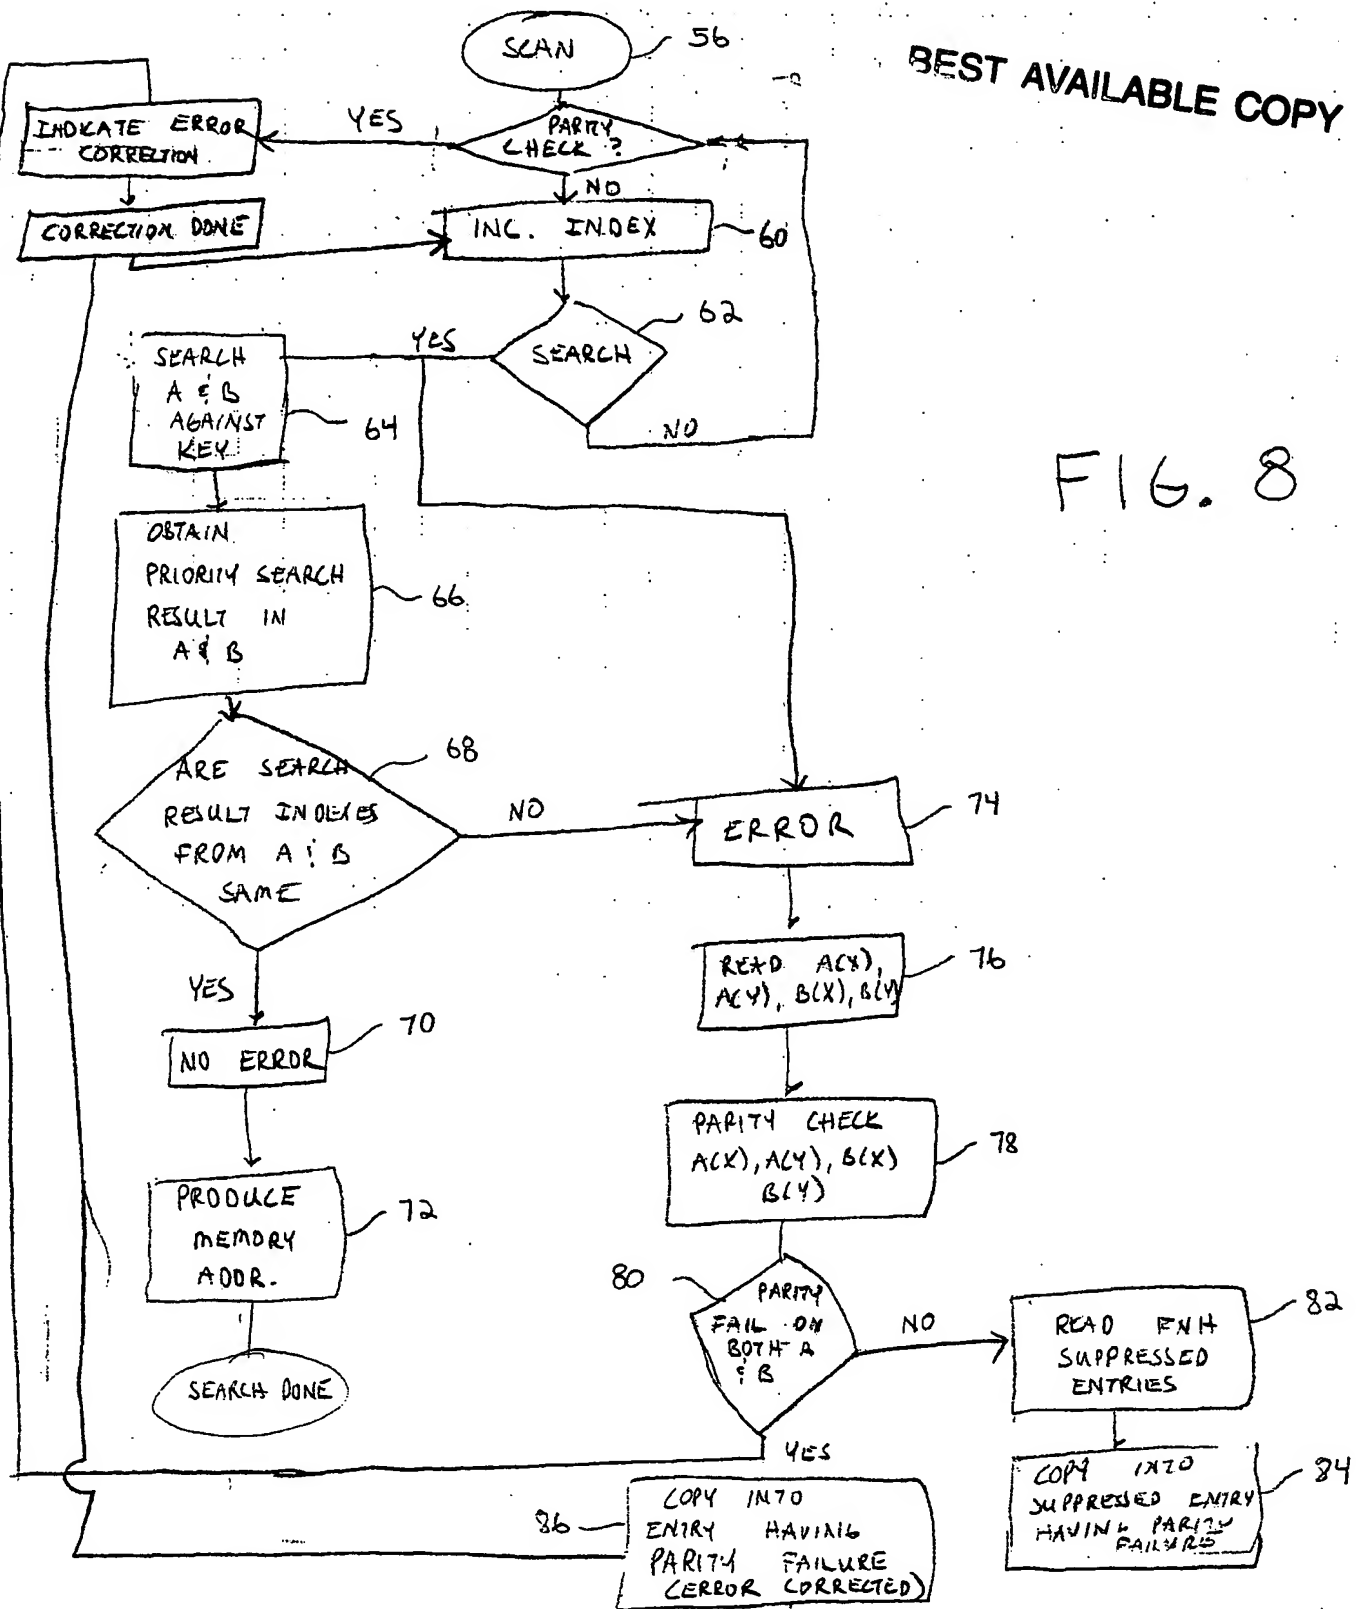 SCAN
56
BEST AVAILABLE COPY
INDICATE ERROR
CORRECTION
YES
PARITY
CHECK?
NO
CORRECTION DONE
INC. INDEX
60
62
SEARCH
A & B
AGAINST
KEY
64
YES
SEARCH
NO
FIG. 8
OBTAIN
PRIORITY SEARCH
RESULT IN
A & B
66
ARE SEARCH
RESULT INDEXES
FROM A & B
SAME
68
NO
ERROR
74
READ A(X),
A(Y), B(X), B(Y)
76
YES
NO ERROR
70
PARITY CHECK
A(X), A(Y), B(X)
B(Y)
78
PRODUCE
MEMORY
ADDR.
72
80
PARITY
FAIL ON
BOTH A
& B
NO
READ FNH
SUPPRESSED
ENTRIES
82
SEARCH DONE
YES
COPY INTO
SUPPRESSED ENTRY
HAVING PARITY
FAILURE
84
86
COPY INTO
ENTRY HAVING
PARITY FAILURE
(ERROR CORRECTED)